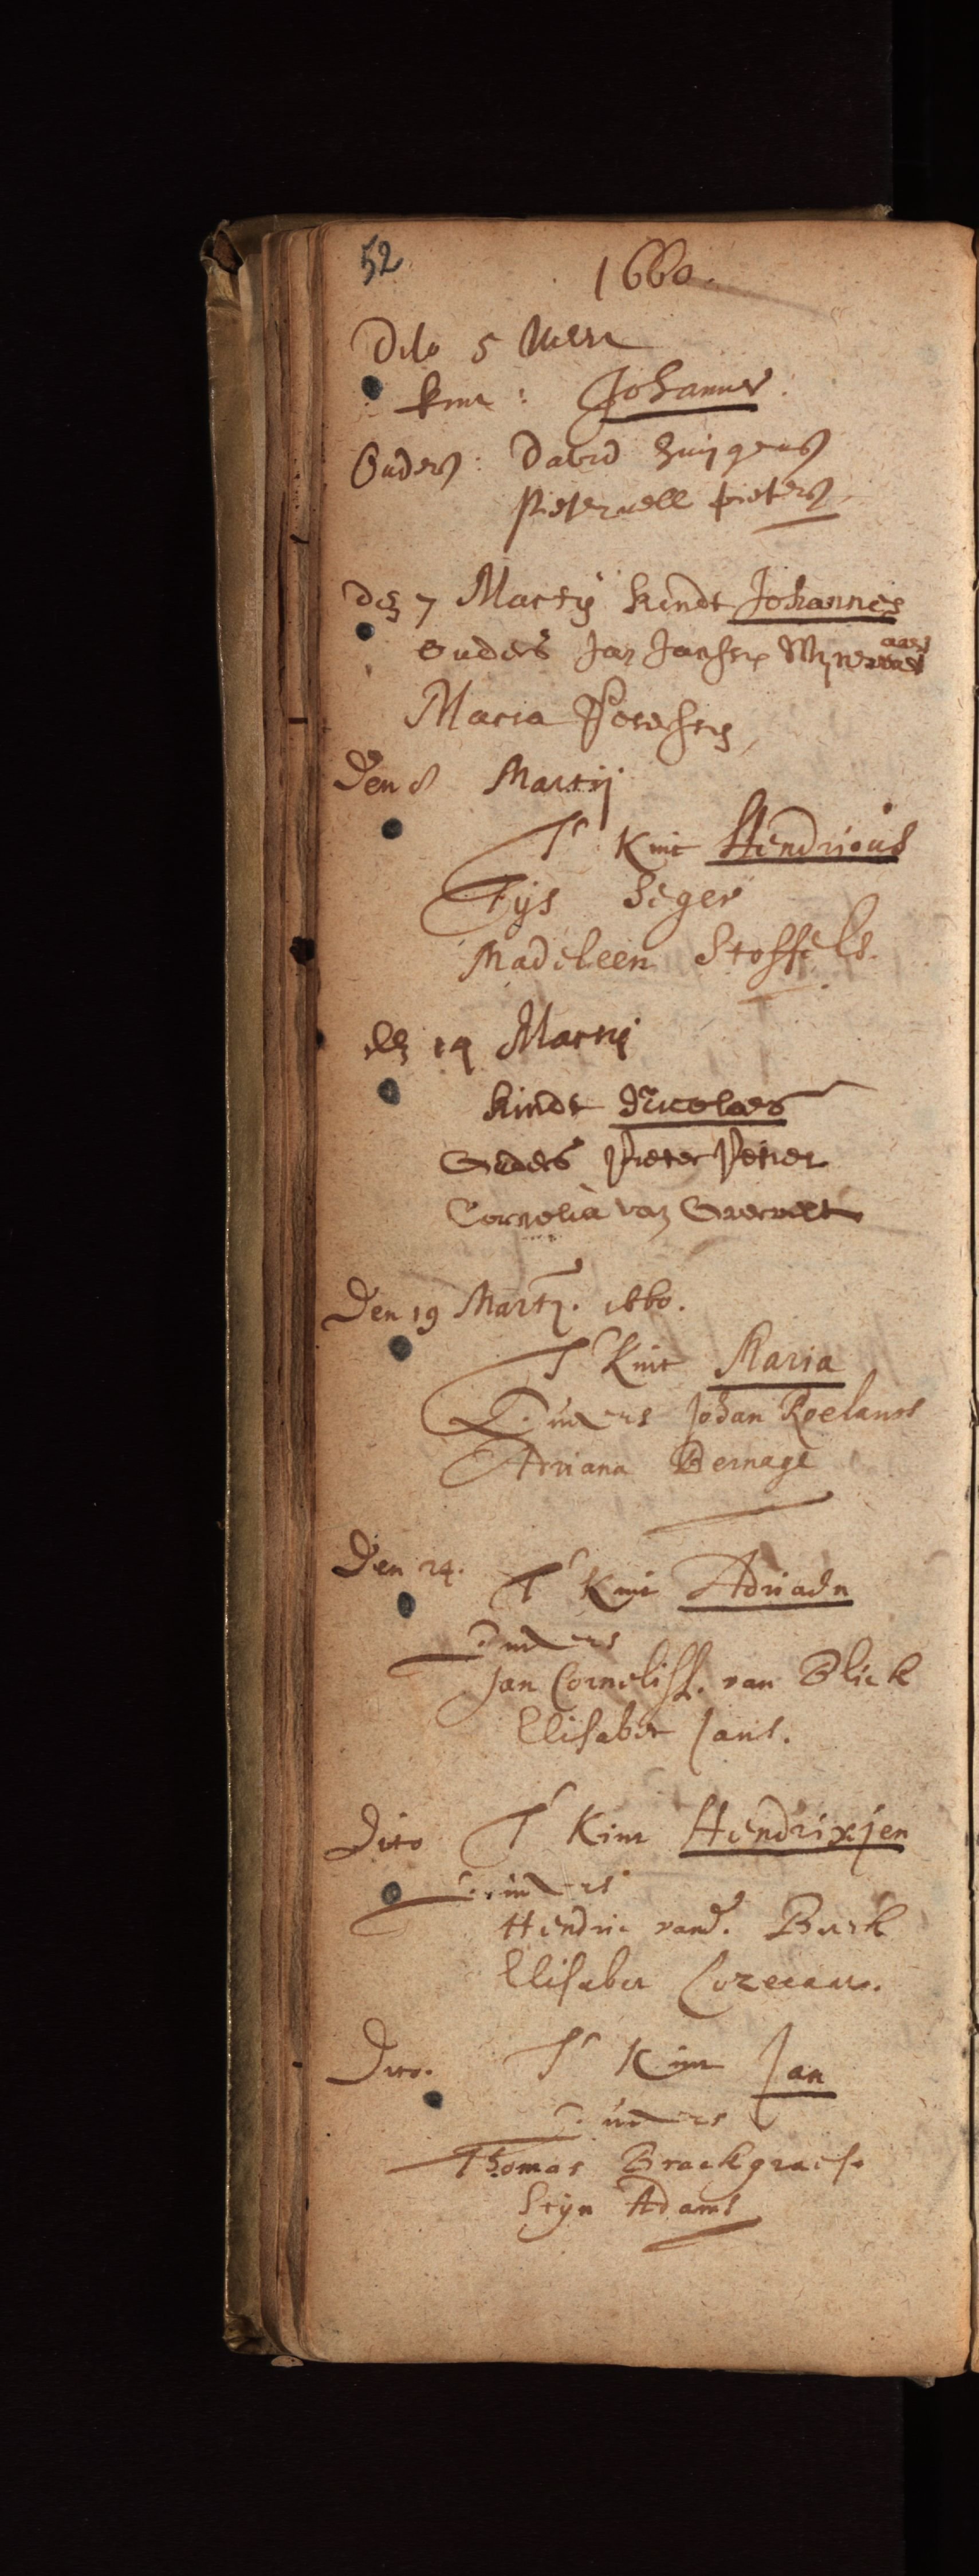 52
1660.
Dito 5 Mert
kint : Johannes
Ouders : David huijgens
Pieternell pieters
den 7 Martij kindt Johannes
ouders Jan Jansen
Maria
Den 8 Martij
T' Kint Hendricus
Tijs Seger
Madeleen Stoffels.
den 14 Martij
kindt Nicolaes
Ouders Pieter
Cornelia van
Den 19 Martij. 1660.
T' Kint Maria
Ouders Johan Roelants
Adriana Bernage
Den 24. T' Kint Adriaen
Ouders
Jan Corneliss. van Blick
Elisabet Jans.
Dito T' Kint Hendrixjen
Ouders
Hendric vand. Burk
Elisabet
Dito. T' Kint Jan
Ouders
Thomas Brackgraef.
Stijn Adams